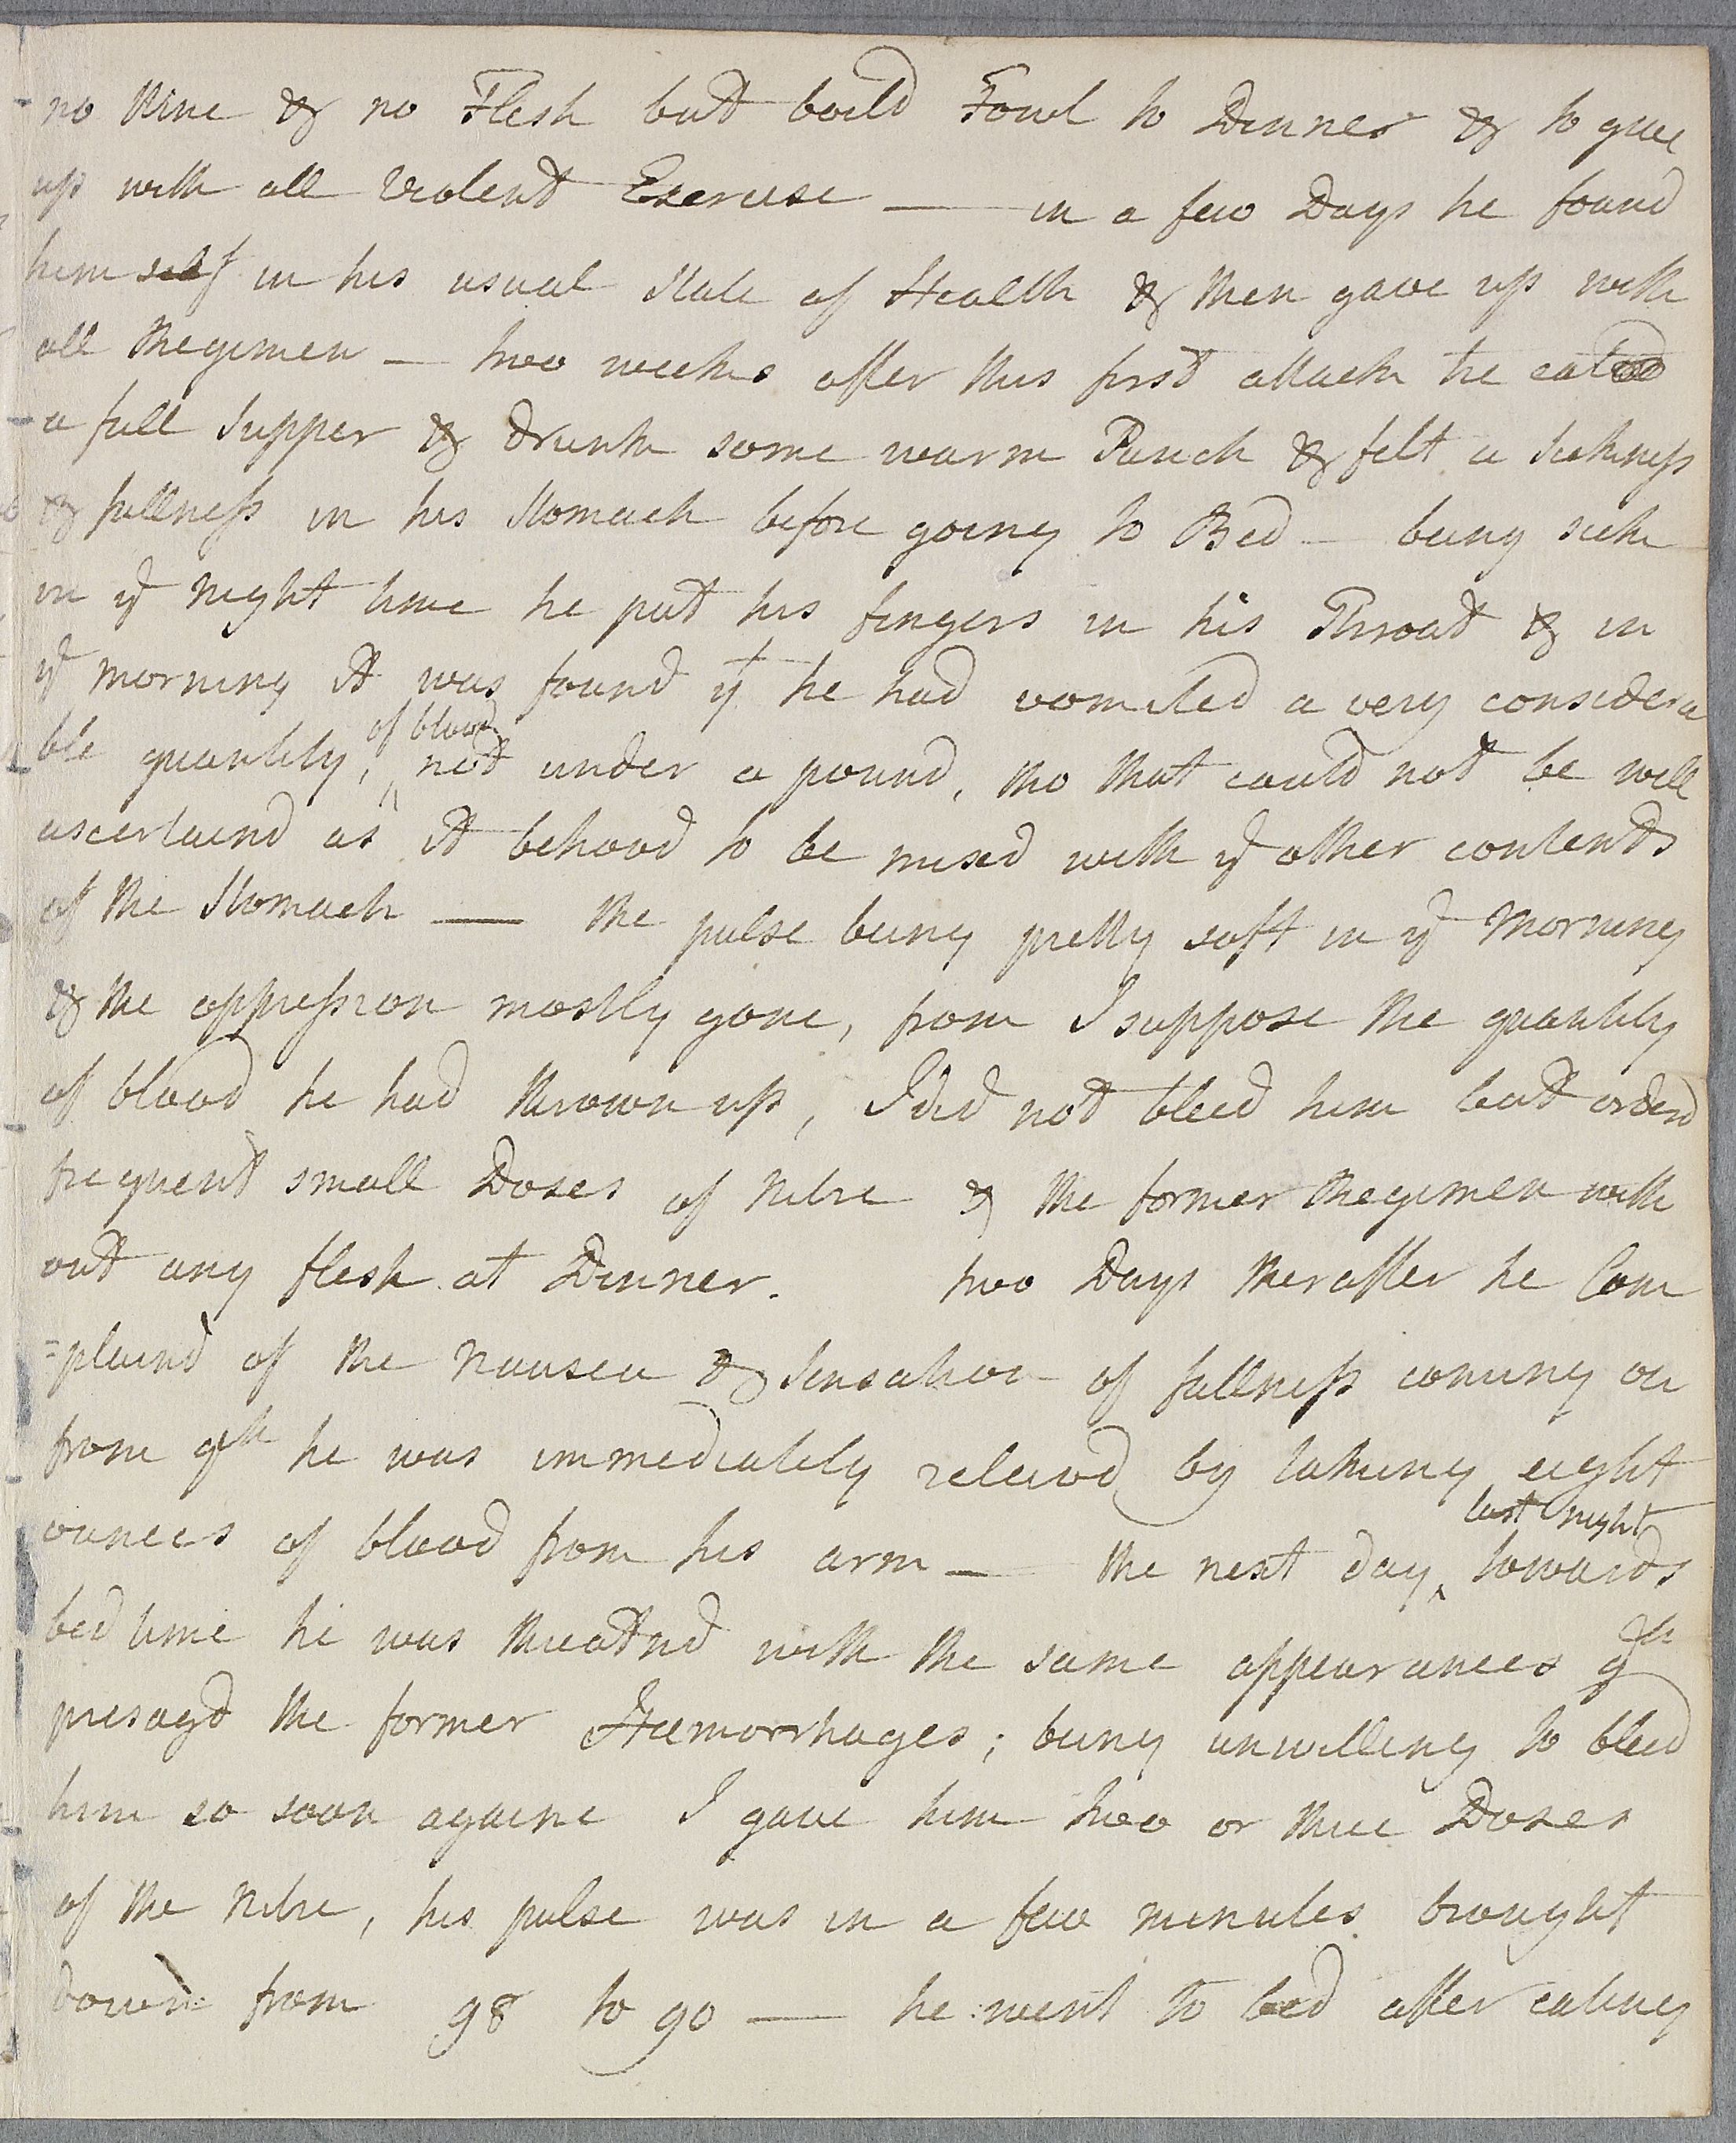 no Wine & no Flesh but boild Fowl to Dinner & to give
up with all Violent Exercise — in a few Days he found
him self in his usual State of Health & then gave up with
all Regimen — two weeks after this first attack he eat
a full Supper & drunk some warm Punch & felt a Sickness
& fullness in his Stomach before going to Bed — being sick
in ye night time he put his fingers in his Throat & in
ye morning it was found yt he had vomited a very considera
ble quantity, of blood not under a pound, tho that could not be well
ascertaind as it behoovd to be mixd with ye other contents
of the Stomach — the pulse being pretty soft in ye Morning
& the oppression mostly gone, from I suppose the quantity
of blood he had thrown up, I did not bleed him but orderd
frequent small Doses of Nitre & the former Regimen with
out any flesh at Dinner. two Days therafter he Com
=plaind of the Nausea & Sensation of fullness coming on
from qch he was immediately relievd by taking eight
ounces of blood from his arm — the next day, last night towards
bed time he was threatnd with the same appearances qch
presagd the former Hæmorrhages; being unwilling to bleed
him so soon againe I gave him two or three Doses
of the Nitre, his pulse was in a few minutes brought
down from 98 to 90 — he went to bed after eating